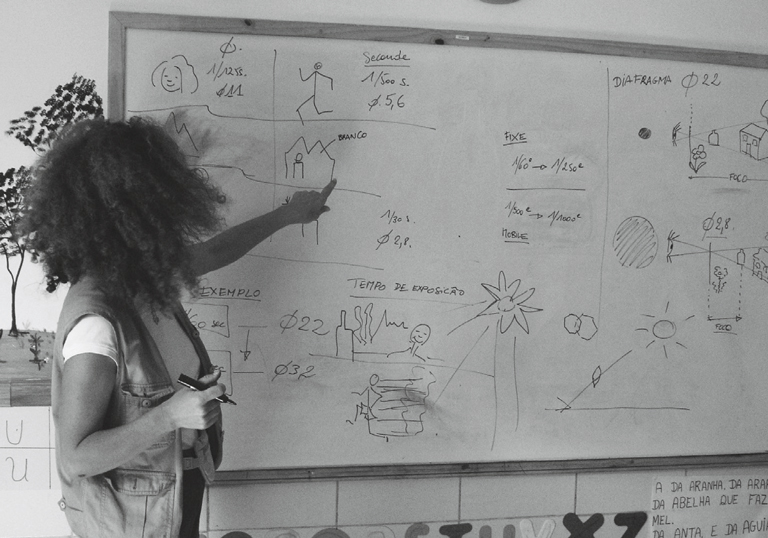 Ø.
1/125s.
Ø11
Seconde
1/500 s.
Ø.5,6
BIANCO
1/30 s.
Ø 2,8.
FIXE
1/60e → 1/250e
1/500e → 1/1000e
MOBILE
DIAFRAGMA Ø 22
FOCO
Ø2,8.
FOCO
EXEMPLO
/60 SEC
Ø22
Ø32
TEMPO DE EXPOSIÇÃO
U
U
A DA ARANHA. DA ARA
DA ABELHA QUE FAZ
MEL.
DA ANTA E DA AGUI
S T U V X Z